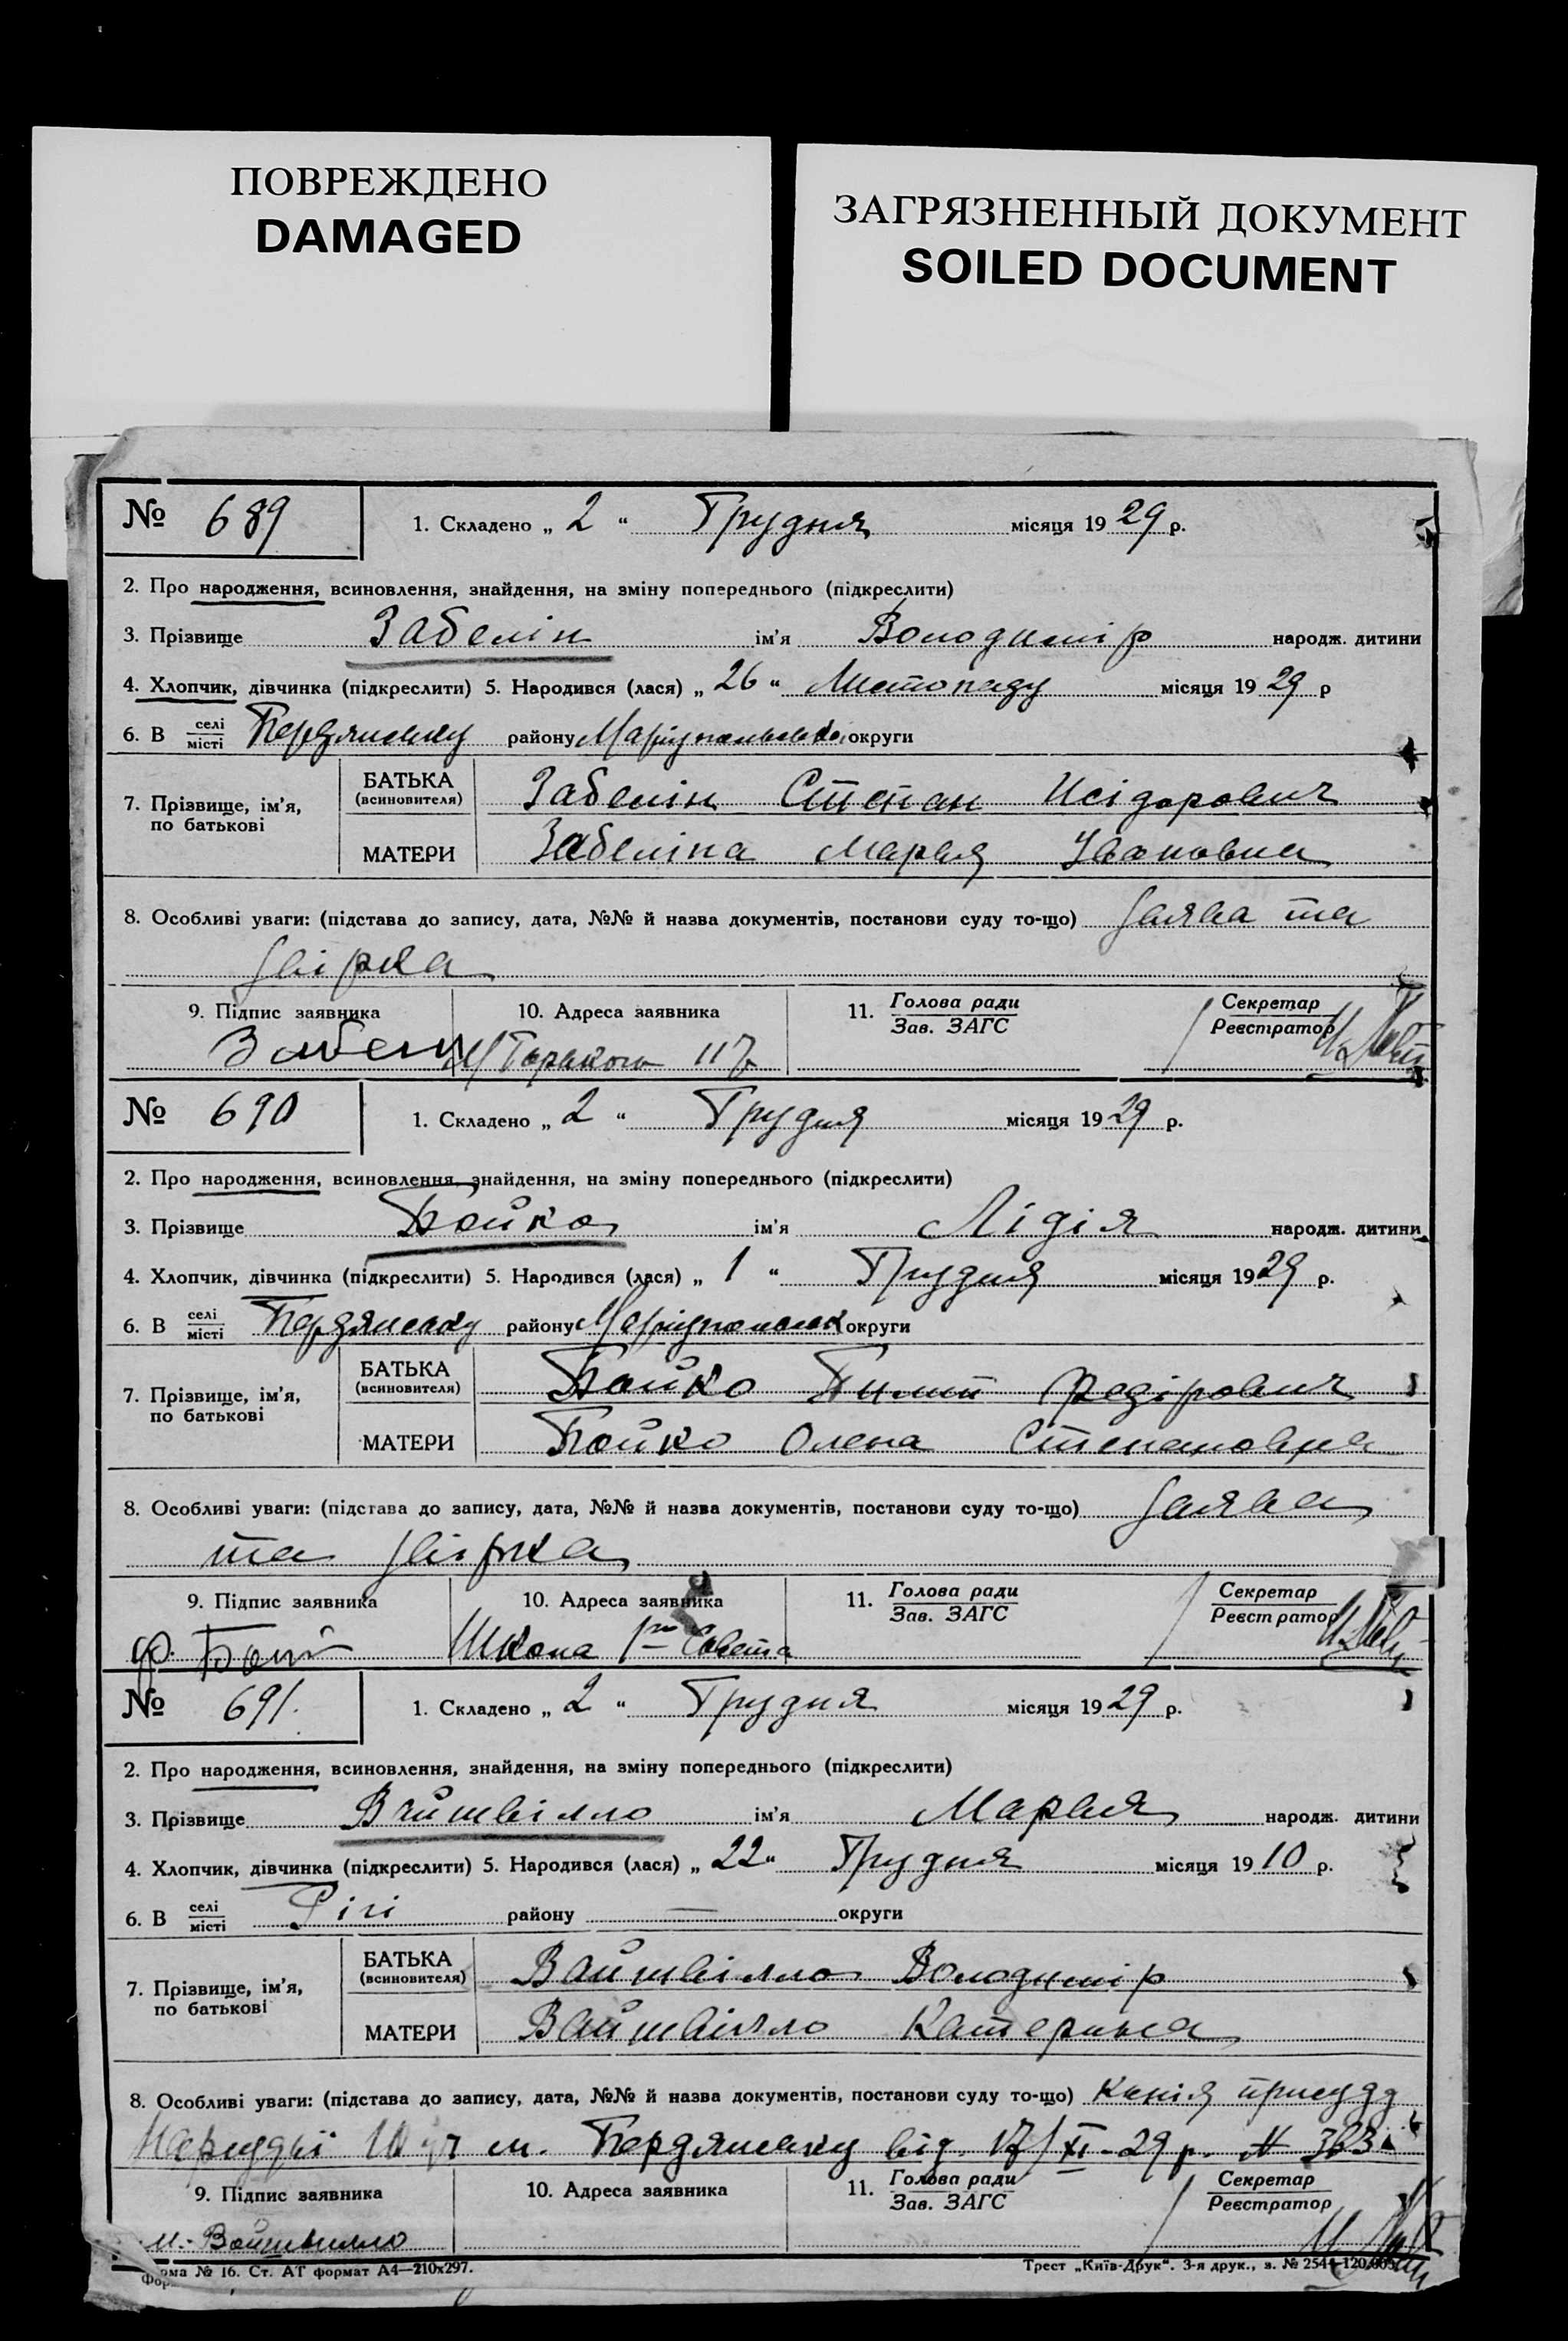 ПОВРЕЖДЕНО
DAMAGED
ЗАГРЯЗНЕННЫЙ ДОКУМЕНТ
SOILED DOCUMENT
№ 689
1. Складено „ 2 “ Грудня місяця 1929 р.
2. Про народження, всиновлення, знайдення, на зміну попереднього (підкреслити)
3. Прізвище Забелін ім’я Володимір народж. дитини
4. Хлопчик, дівчинка (підкреслити) 5. Народився (лася) „ 26 “ Листопаду місяця 1929 р
6. В селі місті Бердянську району Маріупольської округи
7. Прізвище, ім’я, по батькові
БАТЬКА (всиновителя) Забелін Степан Исідорович
МАТЕРИ Забеліна Марья Ивановна
8. Особливі уваги: (підстава до запису, дата, №№ й назва документів, постанови суду то-що) Заява та
Звірка
9. Підпис заявника 10. Адреса заявника 11. Голова ради Зав. ЗАГС Секретар Реєстратор
Забелин Горького 117
№ 690
1. Складено „ 2 “ Грудня місяця 1929 р.
2. Про народження, всиновлення, знайдення, на зміну попереднього (підкреслити)
3. Прізвище Бойко ім’я Лідія народж. дитини
4. Хлопчик, дівчинка (підкреслити) 5. Народився (лася) „ 1 “ Грудня місяця 1929 р.
6. В селі місті Бердянську району Маріупольськ округи
7. Прізвище, ім’я, по батькові
БАТЬКА (всиновителя) Бойко Пилип Федірович
МАТЕРИ Бойко Олена Степановна
8. Особливі уваги: (підстава до запису, дата, №№ й назва документів, постанови суду то-що) Заява
та Звірка
9. Підпис заявника 10. Адреса заявника 11. Голова ради Зав. ЗАГС Секретар Реєстратор
Ф. Бой Школа 1го Совета
№ 691.
1. Складено „ 2 “ Грудня місяця 1929 р.
2. Про народження, всиновлення, знайдення, на зміну попереднього (підкреслити)
3. Прізвище Вайшвілло ім’я Марья народж. дитини
4. Хлопчик, дівчинка (підкреслити) 5. Народився (лася) „ 22 “ Грудня місяця 1910 р.
6. В селі місті Рігі району — округи
7. Прізвище, ім’я, по батькові
БАТЬКА (всиновителя) Вайшвілло Володимір
МАТЕРИ Вайшвілло Катерина
8. Особливі уваги: (підстава до запису, дата, №№ й назва документів, постанови суду то-що) Копія присуду
Нарсудьї 10 уч м. Бердянську від 17/XI-29 р. № 363
9. Підпис заявника 10. Адреса заявника 11. Голова ради Зав. ЗАГС Секретар Реєстратор
М. Вайшвилло
Форма № 16. Ст. АТ формат А4—210х297.
Трест „Київ-Друк“. 3-я друк., з. № 2544-120.005